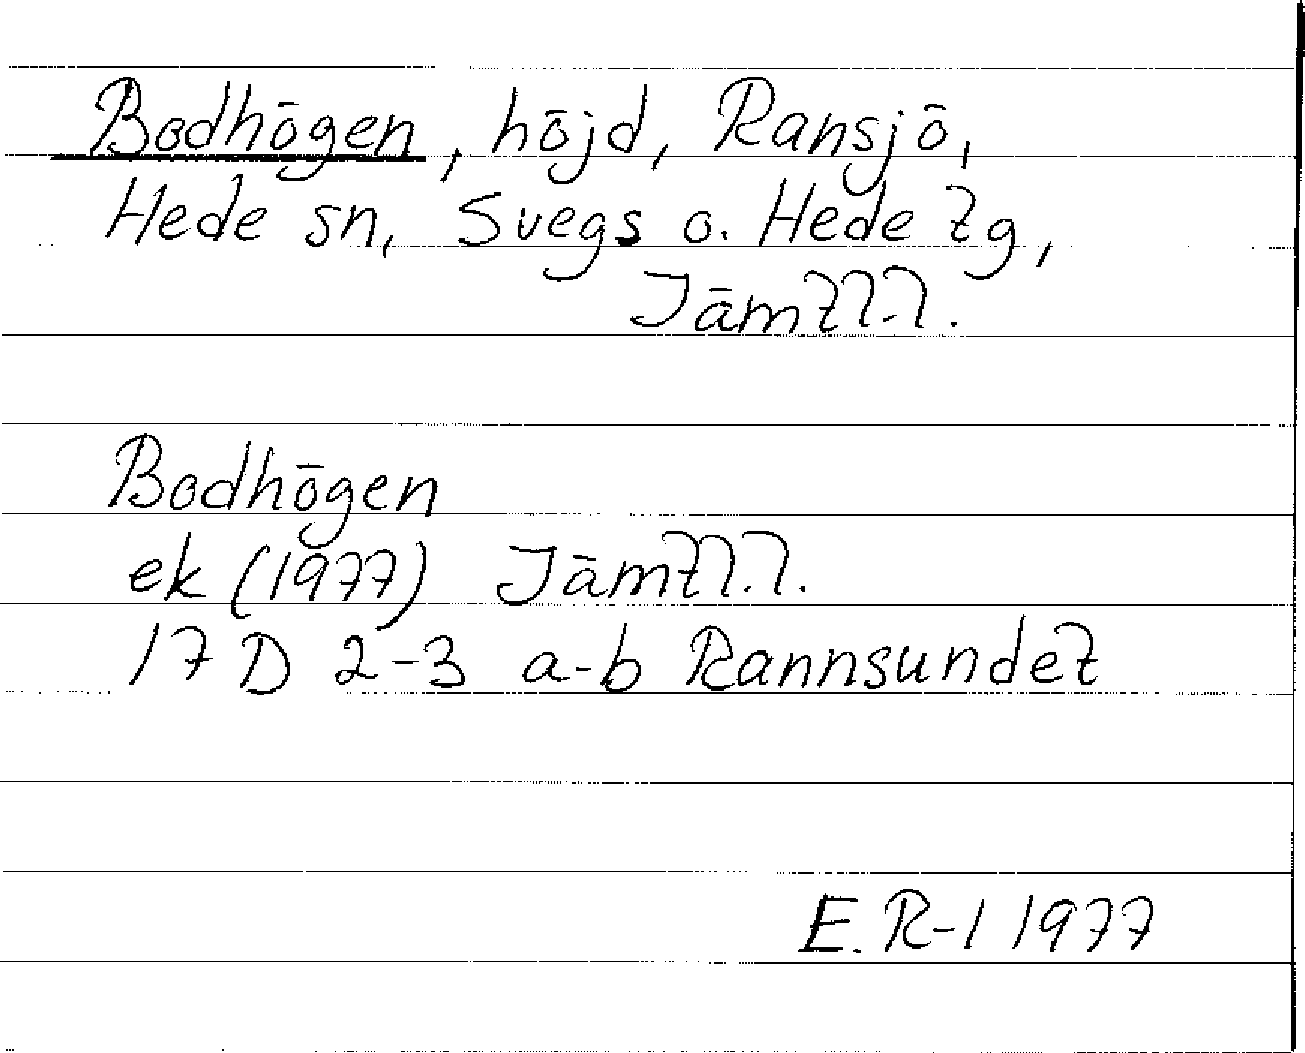 Bodhögen, höjd, Ransjö,
Hede sn, Svegs o. Hede tg,
Jämtl.l.
Bodhögen
ek (1977) Jämtl.l.
17 D 2-3 a-b Rannsundet
E. R-l 1977